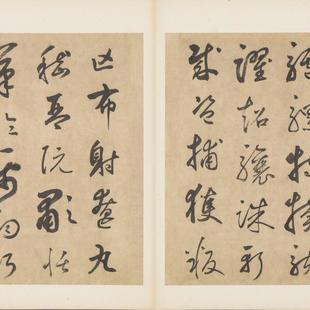 驢騾犢特駭
躍超驤誅斬
賊盜捕獲叛
亡布射遼丸
嵇琴阮嘯恬
筆倫紙鈞巧